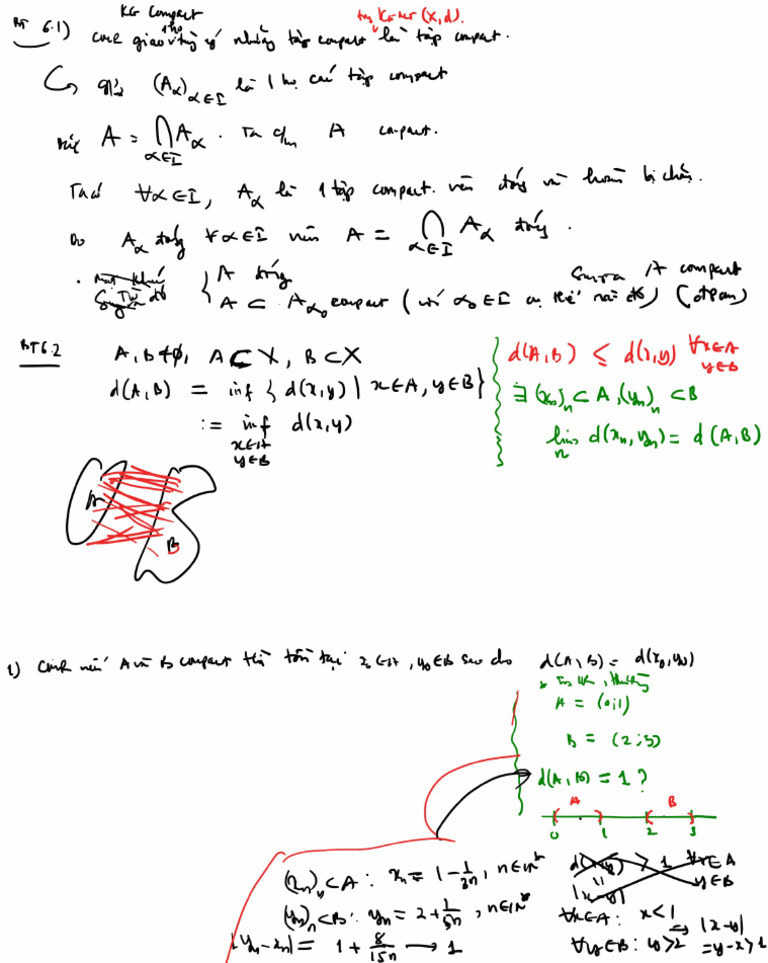 KG compact
BT 6.1) CMR giao tùy ý những tập compact là tập compact.
trong KG metric (X,d).
giả sử (A_α)_{α∈I} là 1 họ các tập compact
Đặt A = ⋂_{α∈I} A_α. Ta c/m A compact.
Ta có ∀α∈I, A_α là 1 tập compact nên đóng và hoàn toàn bị chặn.
Do A_α đóng ∀α∈I nên A = ⋂_{α∈I} A_α đóng.
Từ đó { A đóng
A ⊂ A_{α₀} compact (với α₀∈I cụ thể nào đó) Suy ra A compact (đpcm)
BT 6.2 A, B ≠ ∅, A ⊂ X, B ⊂ X
d(A,B) = inf { d(x,y) | x∈A, y∈B }
:= inf_{x∈A y∈B} d(x,y)
d(A,B) ≤ d(x,y) ∀x∈A y∈B
∃ (x_n)_n ⊂ A, (y_n)_n ⊂ B
lim_n d(x_n,y_n) = d(A,B)
A
B
1) CMR nếu A và B compact thì tồn tại x₀∈A, y₀∈B sao cho d(A,B) = d(x₀,y₀)
A = (0;1)
B = (2;3)
d(A,B) = 1?
A B
0 1 2 3
(x_n)_n ⊂ A: x_n = 1 - 1/3n, n∈ℕ*
(y_n)_n ⊂ B: y_n = 2 + 1/5n, n∈ℕ*
|y_n - x_n| = 1 + 8/15n → 1
d(x,y) > 1 ∀x∈A
|x-y| y∈B
∀x∈A: x<1
∀y∈B: y>2
⇒ |x-y|
= y-x > 1